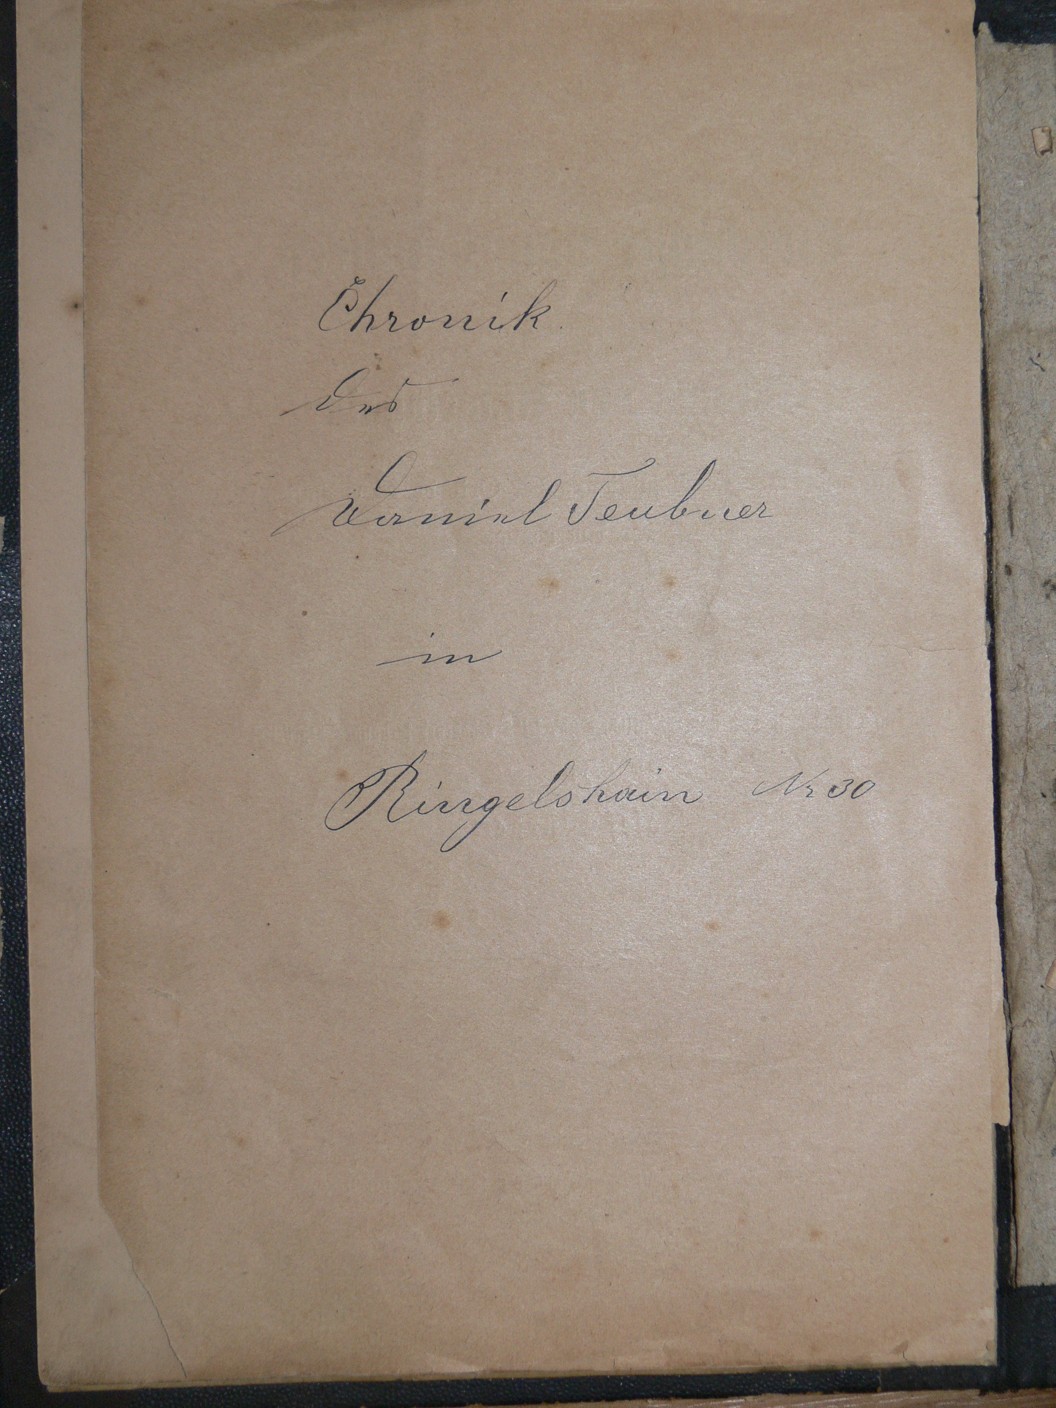 Chronik
des
Daniel Teubner
in
Ringelshain Nr 30